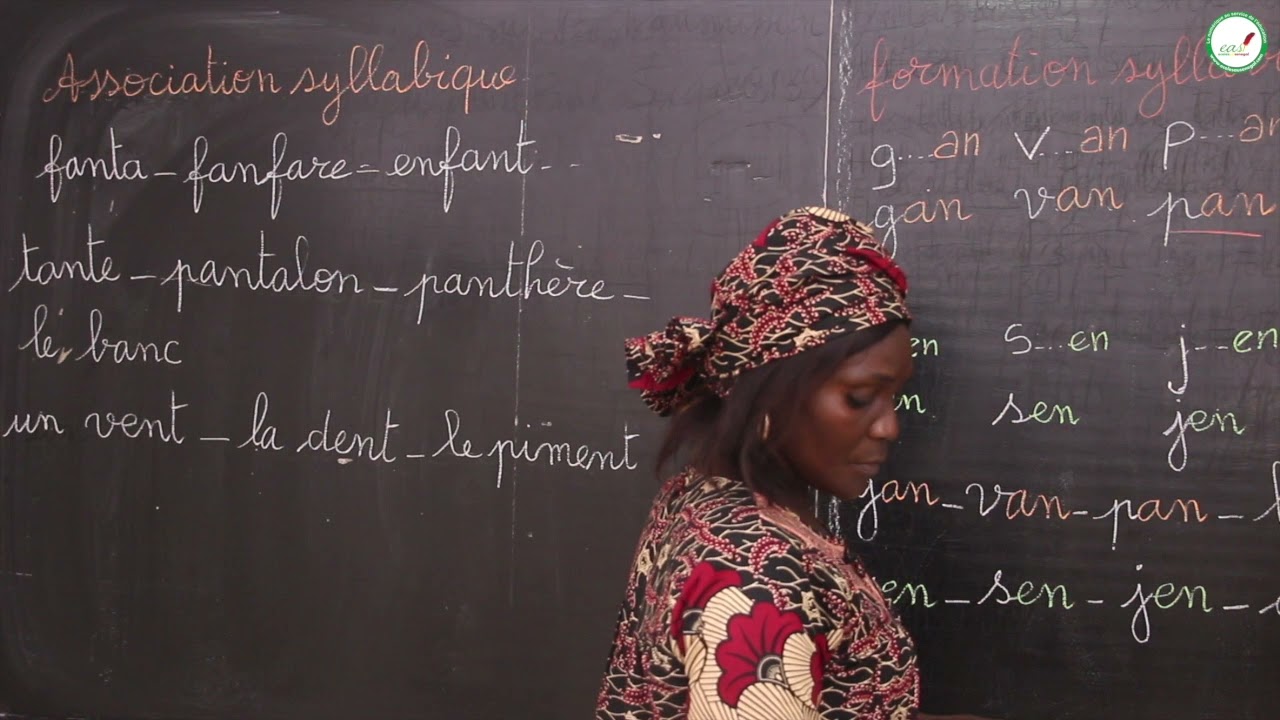 Association syllabique
fanta - fanfare - enfant...
tante - pantalon - panthère -
le banc
un vent - la dent - le piment
formation sylla
g....an v....an p....an
gain van pan
en s...en j...en
en sen jen
jan - van - pan -
en - sen - jen -
easy